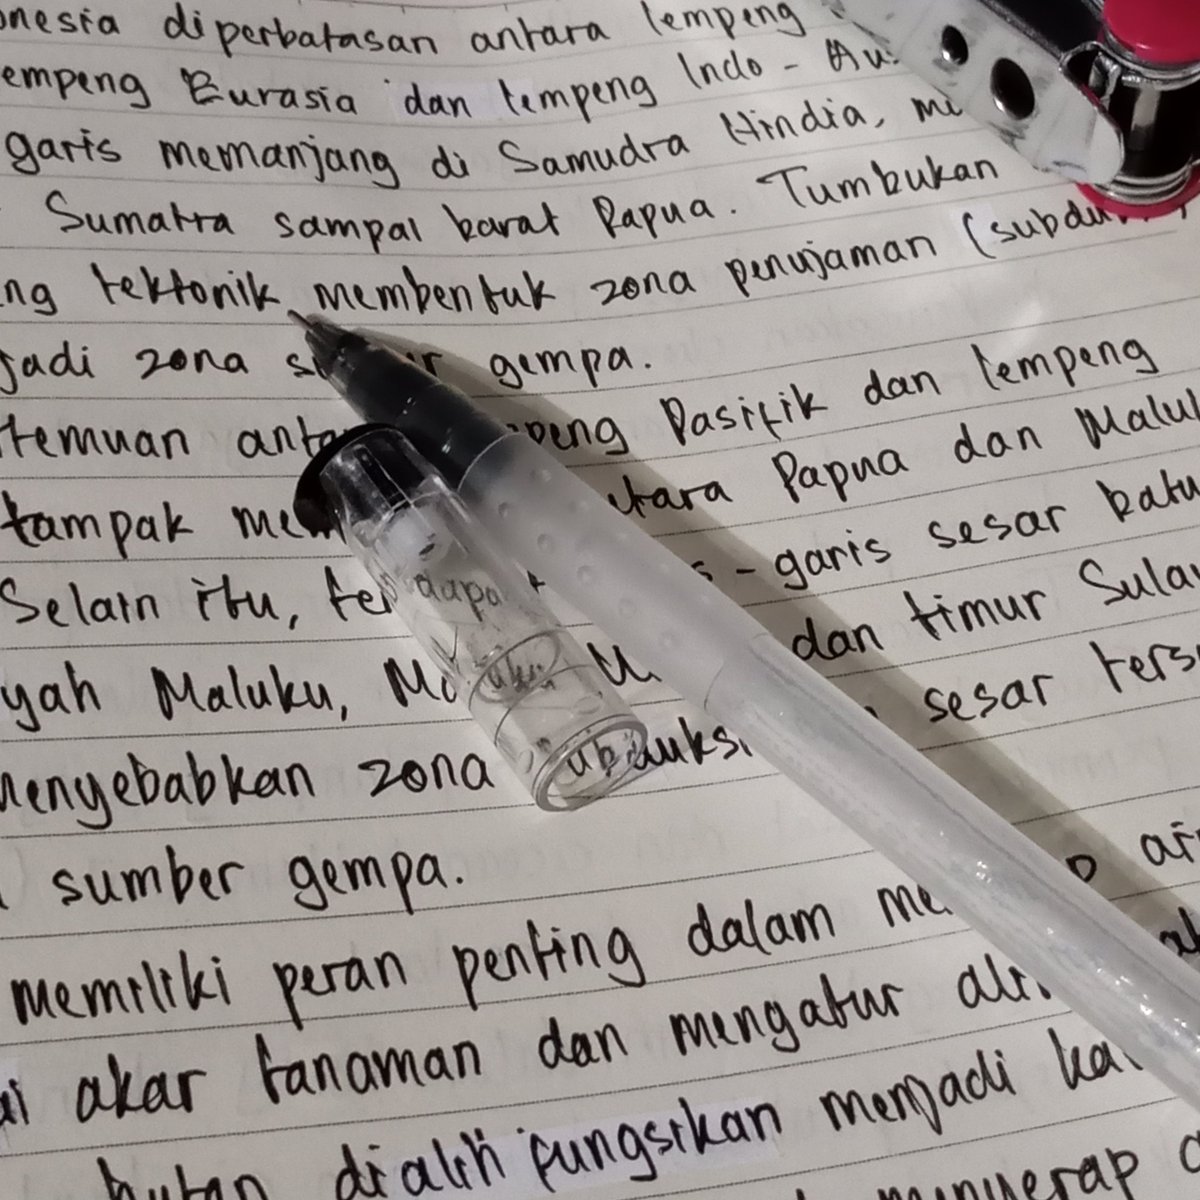 onesia diperbatasan antara lempeng
empeng Eurasia dan lempeng Indo - Aus
garis memanjang di Samudra Hindia, me
Sumatra sampai barat Papua. Tumbukan
ng tektonik membentuk zona penujaman (subduksi)
jadi zona gempa.
temuan Pasifik dan lempeng
tampak utara Papua dan Maluk
Selain itu, terdapat - garis sesar batu
yah Maluku, dan timur Sulaw
menyebabkan zona subduksi sesar ters
sumber gempa.
memiliki peran penting dalam air
akar tanaman dan mengatur
hutan dialih fungsikan menjadi
menyerap